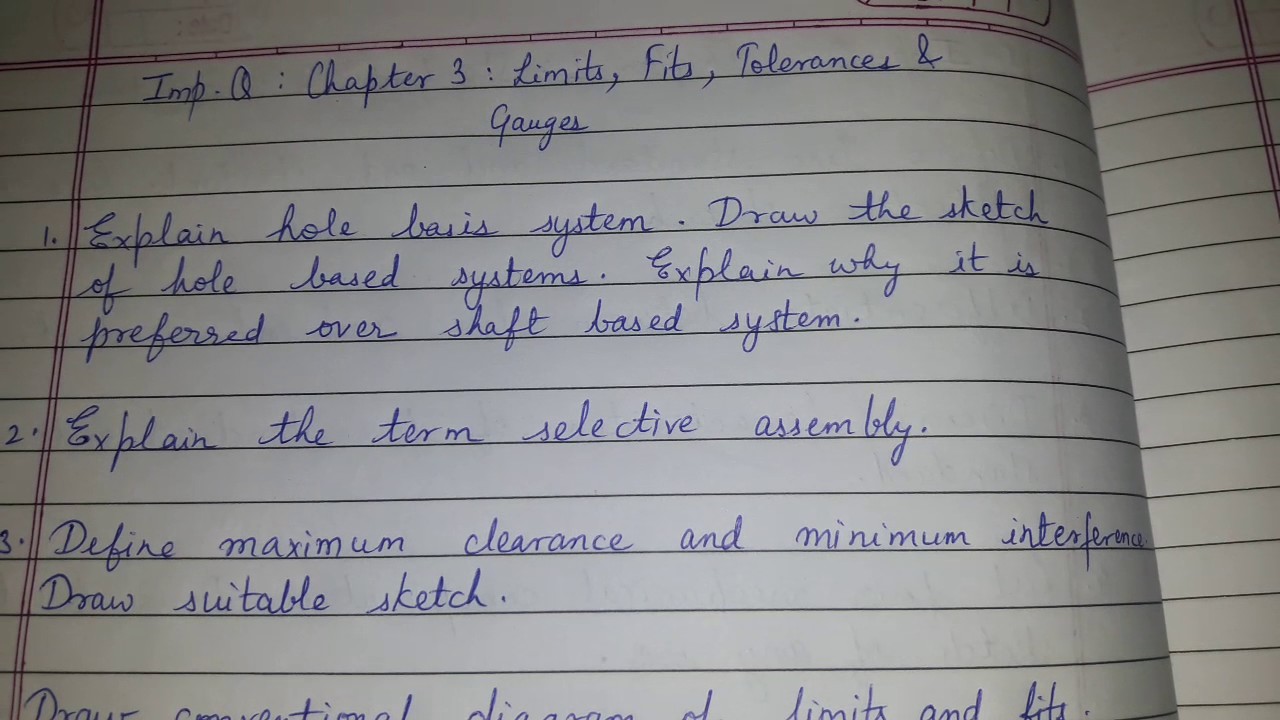 Imp. Q : Chapter 3 : Limits, Fits, Tolerances &
Gauges
1. Explain hole basis system. Draw the sketch
of hole based systems. Explain why it is
preferred over shaft based system.
2. Explain the term selective assembly.
3. Define maximum clearance and minimum interference.
Draw suitable sketch.
Draw conventional diagram of limits and fits.